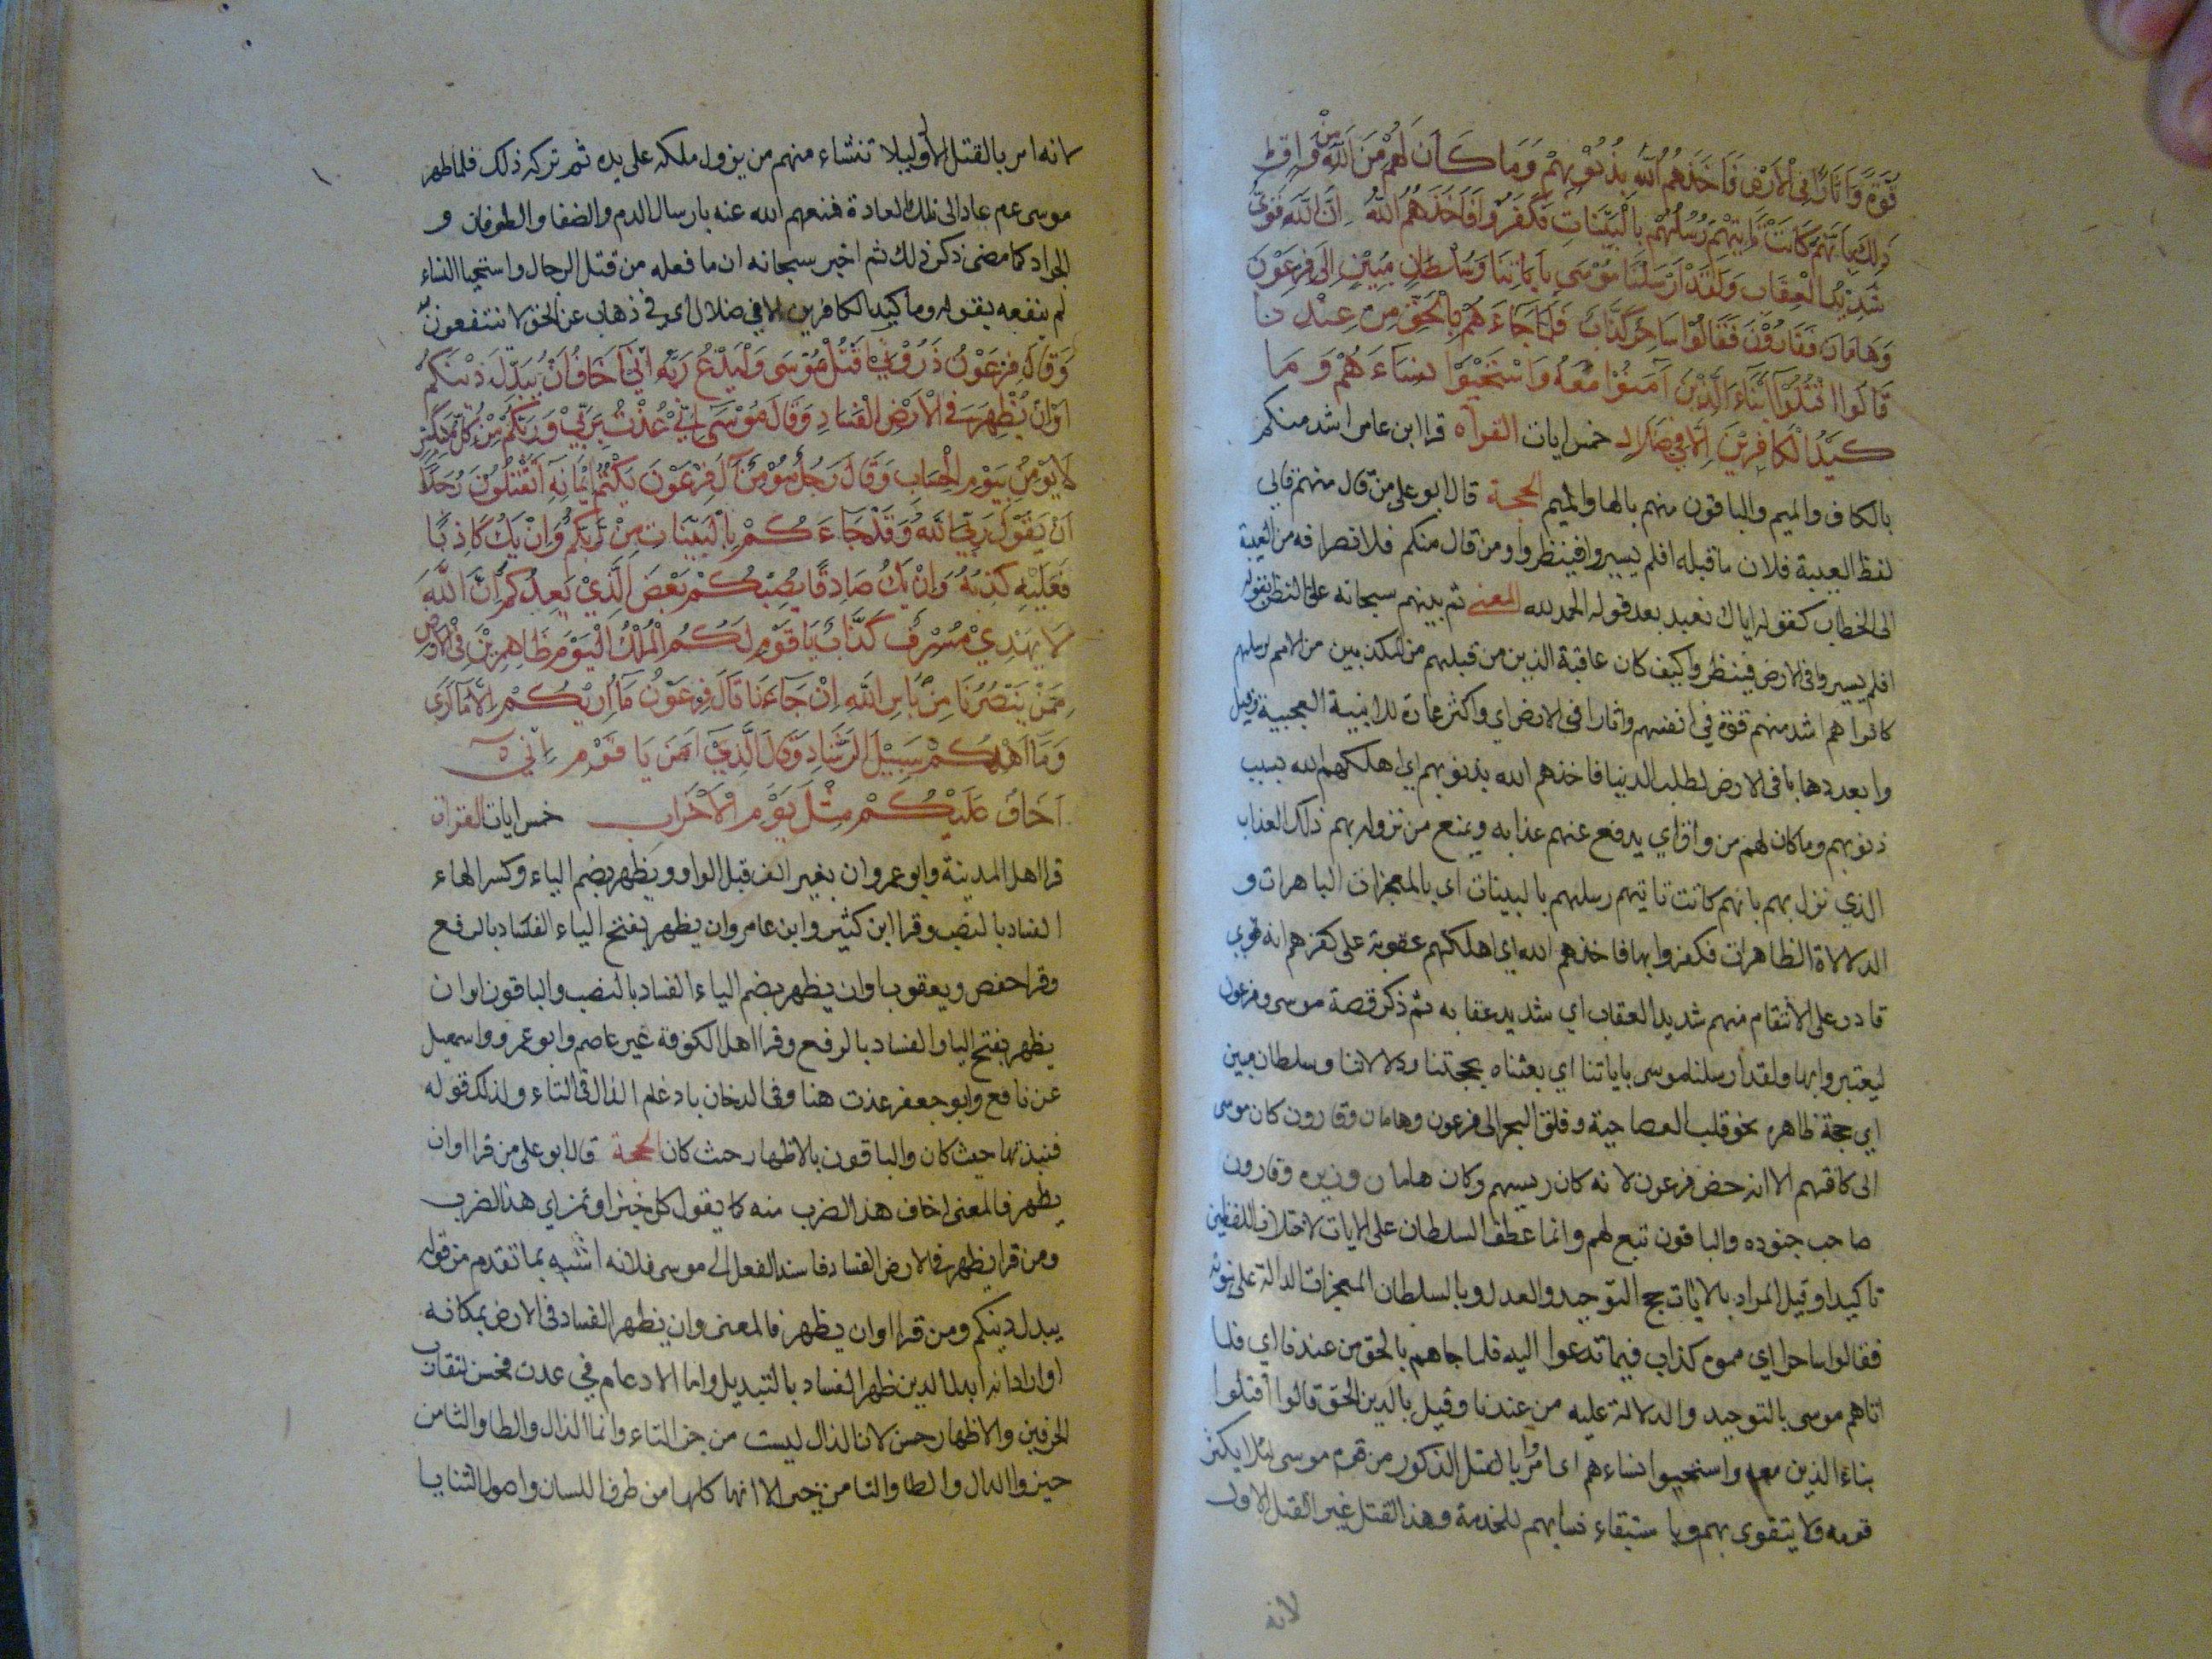 قُوَّةً وَآثَارًا فِي الْأَرْضِ فَأَخَذَهُمُ اللَّهُ بِذُنُوبِهِمْ وَمَا كَانَ لَهُمْ مِنَ اللَّهِ مِنْ وَاقٍ
ذَلِكَ بِأَنَّهُمْ كَانَتْ تَأْتِيهِمْ رُسُلُهُمْ بِالْبَيِّنَاتِ فَكَفَرُوا فَأَخَذَهُمُ اللَّهُ إِنَّ اللَّهَ قَوِيٌّ
شَدِيدُ الْعِقَابِ وَلَقَدْ أَرْسَلْنَا مُوسَى بِآيَاتِنَا وَسُلْطَانٍ مُبِينٍ إِلَى فِرْعَوْنَ
وَهَامَانَ وَقَارُونَ فَقَالُوا سَاحِرٌ كَذَّابٌ فَلَمَّا جَاءَهُمْ بِالْحَقِّ مِنْ عِنْدِنَا
قَالُوا اقْتُلُوا أَبْنَاءَ الَّذِينَ آمَنُوا مَعَهُ وَاسْتَحْيُوا نِسَاءَهُمْ وَمَا
كَيْدُ الْكَافِرِينَ إِلَّا فِي ضَلَالٍ خمس ايات القرآة قرا ابن عامر اشد منكم
بالكاف والميم والباقون منهم بالها والميم الحجة قال ابو علي من قال منهم فاتي
لفظ الغيبة فلان ما قبله افلم يسيروا فينظروا ومن قال منكم فلانصرافه من الغيبة
الى الخطاب كقوله اياك نعبد بعد قوله الحمد لله المعنى ثم بينهم سبحانه على النظر بقوله
افلم يسيروا في الارض فينظروا كيف كان عاقبة الذين من قبلهم من المكذبين من الامم برسلهم
كانوا هم اشد منهم قوة في انفسهم واثارا في الارض اي واكثر عمارة للابنية العجيبة وقيل
وابعد ذهابا في الارض لطلب الدنيا فاخذهم الله بذنوبهم اي اهلكهم الله بسبب
ذنوبهم وما كان لهم من واق اي يدفع عنهم عذابه ويمنع من نزوله بهم ذلك العذاب
الذي نزل بهم بانهم كانت تاتيهم رسلهم بالبينات اي بالمعجزات الباهرات و
الدلالاة الظاهرات فكفروا بها فاخذهم الله اي اهلكهم عقوبة على كفرهم انه قوي
قادر على الانتقام منهم شديد العقاب اي شديد عقابه ثم ذكر قصة موسى وفرعون
ليعتبروا بها ولقد ارسلنا موسى باياتنا اي بعثناه بحجتنا ودلالاتنا وسلطان مبين
اي حجة ظاهرة نحو قلب العصا حية وفلق البحر الى فرعون وهامان وقارون كان موسى
الى كافتهم الا انه خص فرعون لانه كان رييسهم وكان هامان وزيره وقارون
صاحب جنوده والباقون تبع لهم وانما عطف السلطان على الايات لاختلاف اللفظين
تاكيدا وقيل المراد بالايات حجج التوحيد والعدل وبالسلطان المعجزات الدالة على نبوته
فقالوا ساحر اي مموه كذاب فيما تدعوا اليه فلما جاهم بالحق من عندنا اي فلما
اتاهم موسى بالتوحيد والدلالة عليه من عندنا وقيل بالدين الحق قالوا اقتلوا
بناء الذين معه واستحيوا نساءهم اي امروا بالقتل الذكور من قوم موسى لئلا يكثر
قومه ولا يتقوى بهم وباستبقاء نسايهم للخدمة وهذا القتل غير القتل الاول
لانه
لانه امر بالقتل الاول ليلا تنشاء منهم من يزول ملكه على يده ثم تركه ذلك فلما ظهر
موسى عم عاد الى تلك العادة فمنعهم الله عنه بارسال الدم والضفا والطوفان و
الجراد كما مضى ذكر ذلك ثم اخبر سبحانه ان ما فعله من قتل الرجال واستحيا النساء
لم ينفعه بقوله وما كيد الكافرين الا في ضلال اي في ذهاب عن الحق لا ينتفعون به
وَقَالَ فِرْعَوْنُ ذَرُونِي أَقْتُلْ مُوسَى وَلْيَدْعُ رَبَّهُ إِنِّي أَخَافُ أَنْ يُبَدِّلَ دِينَكُمْ
أَوْ أَنْ يُظْهِرَ فِي الْأَرْضِ الْفَسَادَ وَقَالَ مُوسَى إِنِّي عُذْتُ بِرَبِّي وَرَبِّكُمْ مِنْ كُلِّ مُتَكَبِّرٍ
لَا يُؤْمِنُ بِيَوْمِ الْحِسَابِ وَقَالَ رَجُلٌ مُؤْمِنٌ مِنْ آلِ فِرْعَوْنَ يَكْتُمُ إِيمَانَهُ أَتَقْتُلُونَ رَجُلًا
أَنْ يَقُولَ رَبِّيَ اللَّهُ وَقَدْ جَاءَكُمْ بِالْبَيِّنَاتِ مِنْ رَبِّكُمْ وَإِنْ يَكُ كَاذِبًا
فَعَلَيْهِ كَذِبُهُ وَإِنْ يَكُ صَادِقًا يُصِبْكُمْ بَعْضُ الَّذِي يَعِدُكُمْ إِنَّ اللَّهَ
لَا يَهْدِي مَنْ هُوَ مُسْرِفٌ كَذَّابٌ يَا قَوْمِ لَكُمُ الْمُلْكُ الْيَوْمَ ظَاهِرِينَ فِي الْأَرْضِ
فَمَنْ يَنْصُرُنَا مِنْ بَأْسِ اللَّهِ إِنْ جَاءَنَا قَالَ فِرْعَوْنُ مَا أُرِيكُمْ إِلَّا مَا أَرَى
وَمَا أَهْدِيكُمْ إِلَّا سَبِيلَ الرَّشَادِ وَقَالَ الَّذِي آمَنَ يَا قَوْمِ إِنِّي
أَخَافُ عَلَيْكُمْ مِثْلَ يَوْمِ الْأَحْزَابِ خمس ايات القراة
قرا اهل المدينة وابو عمرو وان بغير الف قبل الواو ويظهر بضم الياء وكسر الهاء
الفساد بالنصب وقرا ابن كثير وابن عامر وان يظهر بفتح الياء الفساد بالرفع
وقرا حفص ويعقوب او ان يظهر بضم الياء الفساد بالنصب والباقون او ان
يظهر بفتح اليا والفساد بالرفع وقرا اهل الكوفة غير عاصم وابو عمرو واسمعيل
عن نافع وابو جعفر عذت هنا وفي الدخان بادغام الذال في التاء وكذلك قوله
فنبذتها حيث كان والباقون بالاظهار حيث كان الحجة قال ابو علي من قرا او ان
يظهر فالمعنى اخاف هذا الضرب منه كما يقول كل خبزا او تمرا اي هذا الضرب
ومن قرا يظهر في الارض الفساد فاسند الفعل الى موسى فلانه اشبه بما تقدم من قوله
يبدل دينكم ومن قرا او ان يظهر فالمعنى وان يظهر الفساد في الارض بمكانه
او اراد انه ابدل الدين ظهر الفساد بالتبديل واما الادغام في عدت فحسن لتقارب
الحرفين والاظهار حسن لان الذال ليست من حيز التاء وانما الذال والظا والثا من
حيز والدال والطا والتا من حيز الا انها كلها من طرف اللسان واصول الثنايا